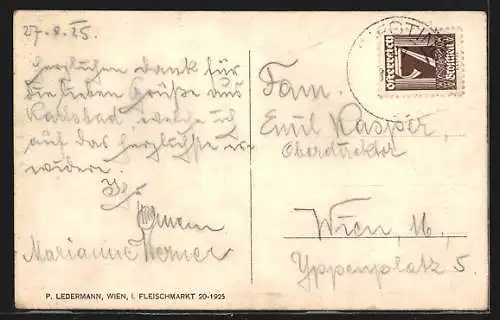 27.8.25.
Herzlichen Dank für
die lieben Grüße aus
Karlsbad, welche ich
auf das herzlichste er-
widere.
Marianne Werner
Fam.
Emil Kasper,
Oberdirektor
Wien 16,
Yppenplatz 5.
7
P. LEDERMANN, WIEN, I. FLEISCHMARKT 20-1925